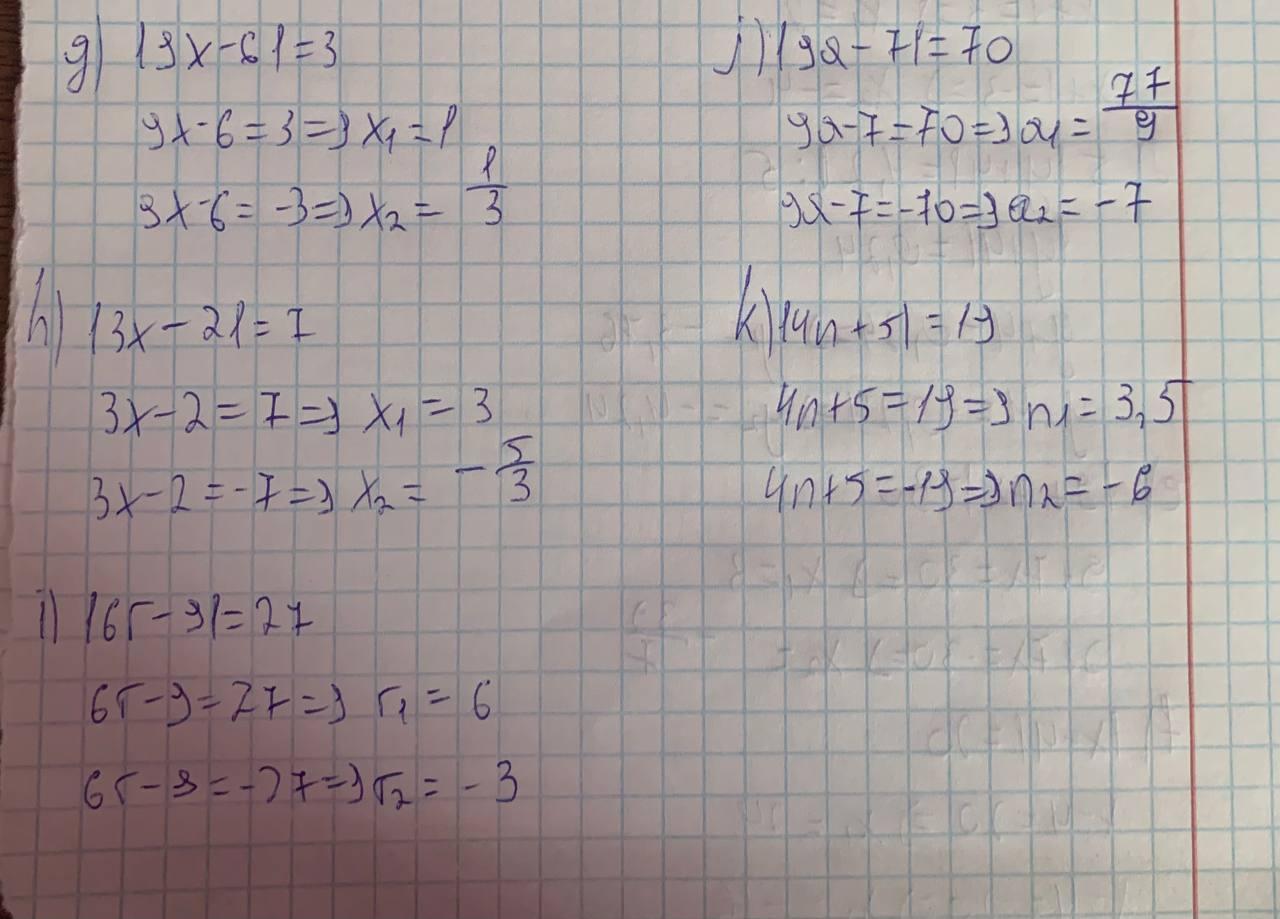 g) |9x-6|=3
9x-6=3=>x₁=1
9x-6=-3=>x₂=1/3
h) |3x-2|=7
3x-2=7=>x₁=3
3x-2=-7=>x₂=-5/3
i) |6r-9|=27
6r-9=27=>r₁=6
6r-9=-27=>r₂=-3
j) |9a-7|=70
9a-7=70=>a₁=77/9
9a-7=-70=>a₂=-7
k) |4n+5|=19
4n+5=19=>n₁=3,5
4n+5=-19=>n₂=-6